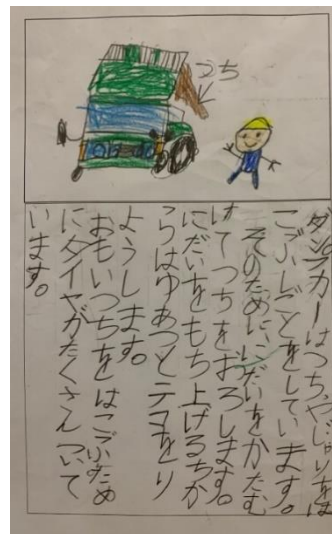 つち
ダンプカーはつちやじゃりをは
こぶしごとをしています。
そのためににだいをかたむ
けてつちをおろします。
にだいをもち上げるちか
らはゆあつとテコをり
ようします。
おもいつちをはこぶため
にタイヤがたくさんついて
います。